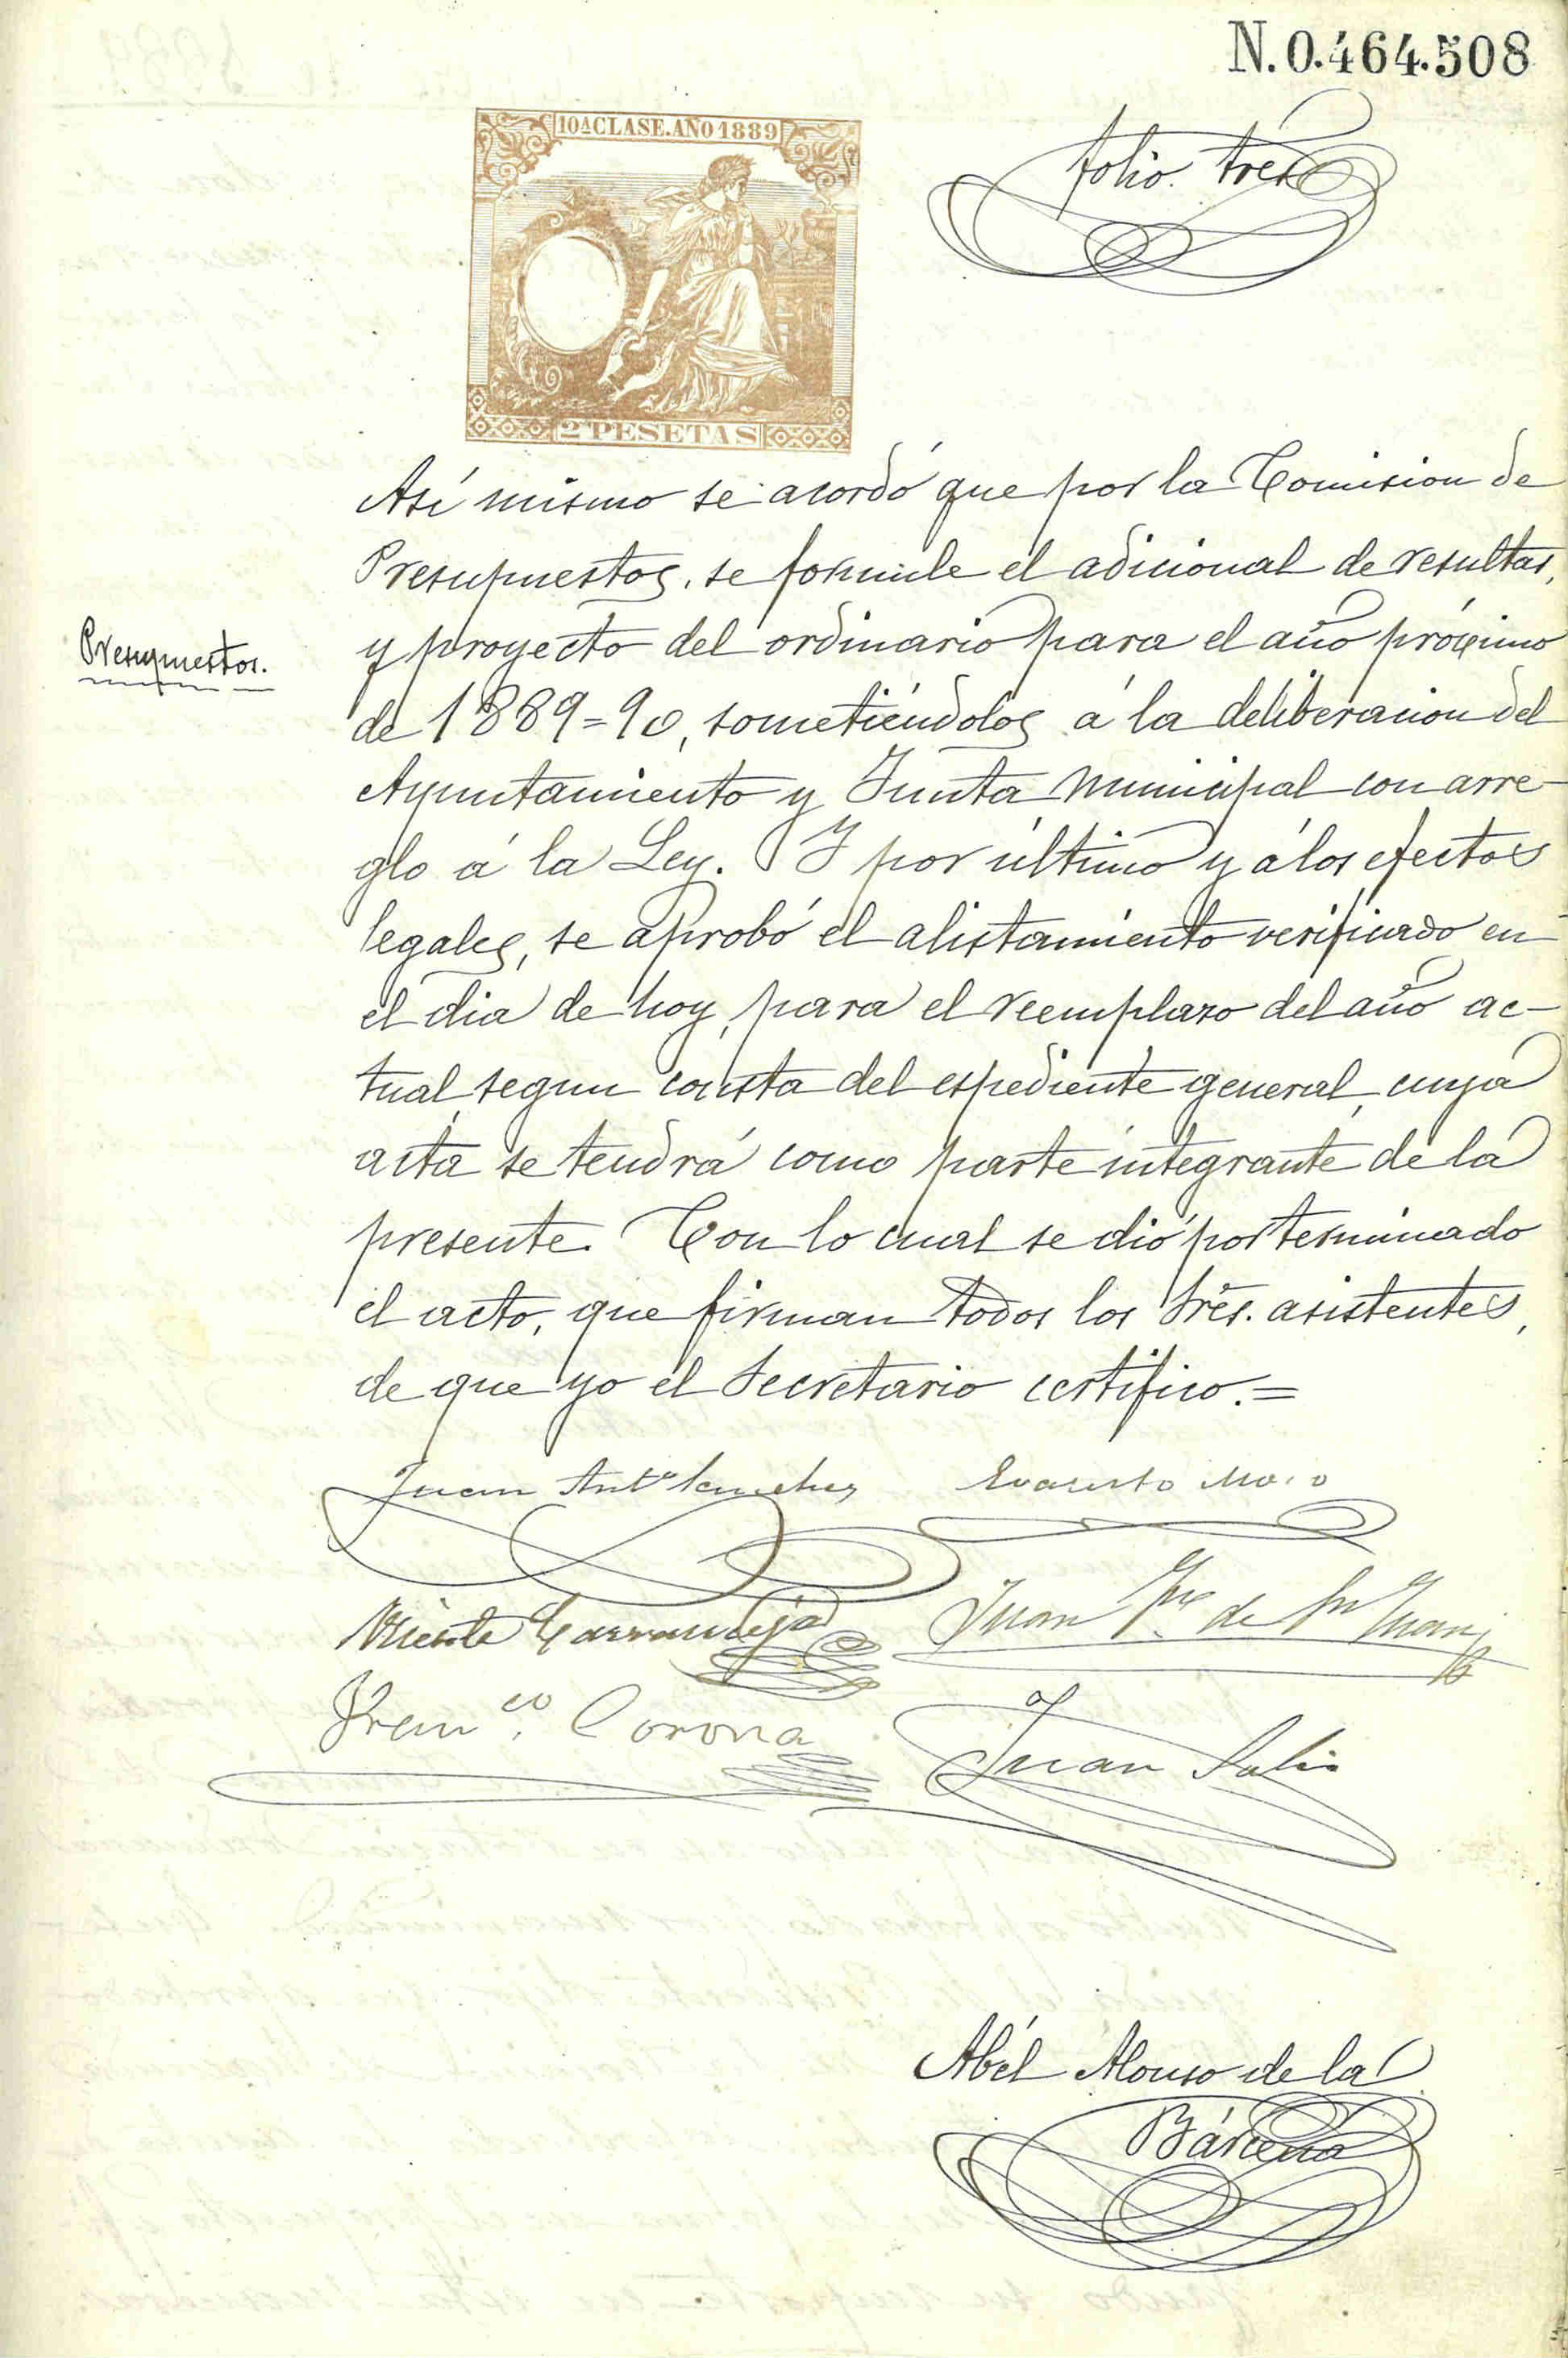 N.0.464.508
10ª CLASE.AÑO 1889
folio. tres
2 PESETAS
Así mismo se acordó que por la Comision de
Presupuestos, se formule el adicional de resultas,
Presupuestos.
y proyecto del ordinario para el año próximo
de 1889=90, sometiéndolos á la deliberacion del
Ayuntamiento y Junta Municipal con arre-
glo á la Ley. Y por último y á los efectos
legales, se aprobó el alistamiento verificado en
el dia de hoy, para el reemplazo del año ac-
tual, segun consta del espediente general, cuya
acta se tendrá como parte integrante de la
presente. Con lo cual se dió por terminado
el acto, que firman todos los Sres. asistentes,
de que yo el Secretario certifico.=
Juan Antº Sanchez Evaristo Moro
Vicente Carrandeja Juan de Sn Juan
Francº. Corona
Juan Solis
Abél Alonso de la
Bárcena